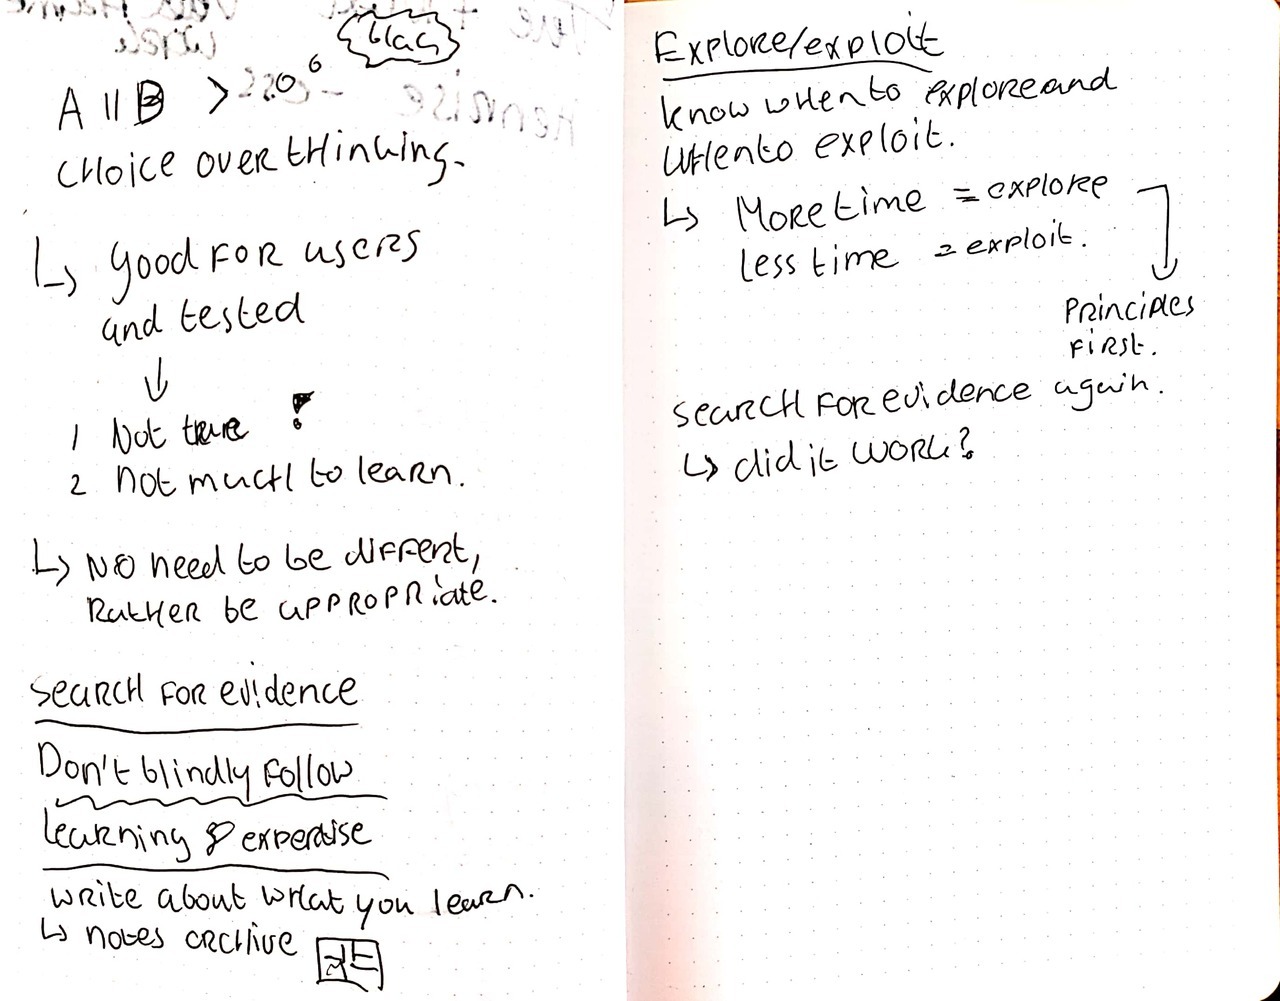 A || B >
CHOICE OVER tHinking.
↳ good FOR users
and tested
↓
1 Not true !
2 not mucH to learn.
↳ NO need to be diffeRent,
RatHER be appROPRiate.
SeaRCH FOR evidence
Don't blindly Follow
learning & expertise
write about wHat you learn.
↳ notes archive
Explore/exploit
know wHen to explore and
wHen to exploit.
↳ More time = explore
less time = exploit.
PRinciples
FiRSt.
SeaRCH FOR evidence again.
↳ did it WORK?